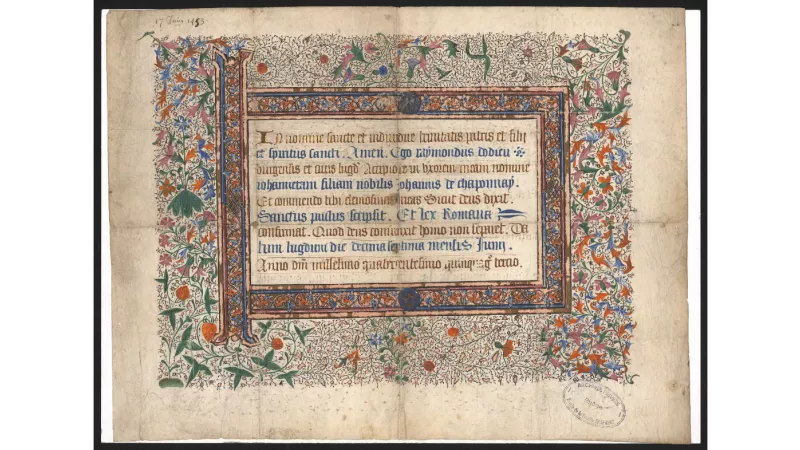 17 Juin 1453
In nomine sancte et individue trinitatis patris et filii
et spiritus sancti. Amen. Ego raymondus
burgensis et civis lugd. Accipio te in uxorem meam nomine
iohannetam filiam nobilis Johannis de chaponnay.
Et commendo tibi elemosinas meas Sicut deus dixit.
Sanctus paulus scripsit. Et lex Romana
confirmat. Quod deus coniunxit homo non separet. Da
tum lugduni die decima septima mensis Iunij.
Anno dñi millesimo quatercentesimo quinquag° tercio.